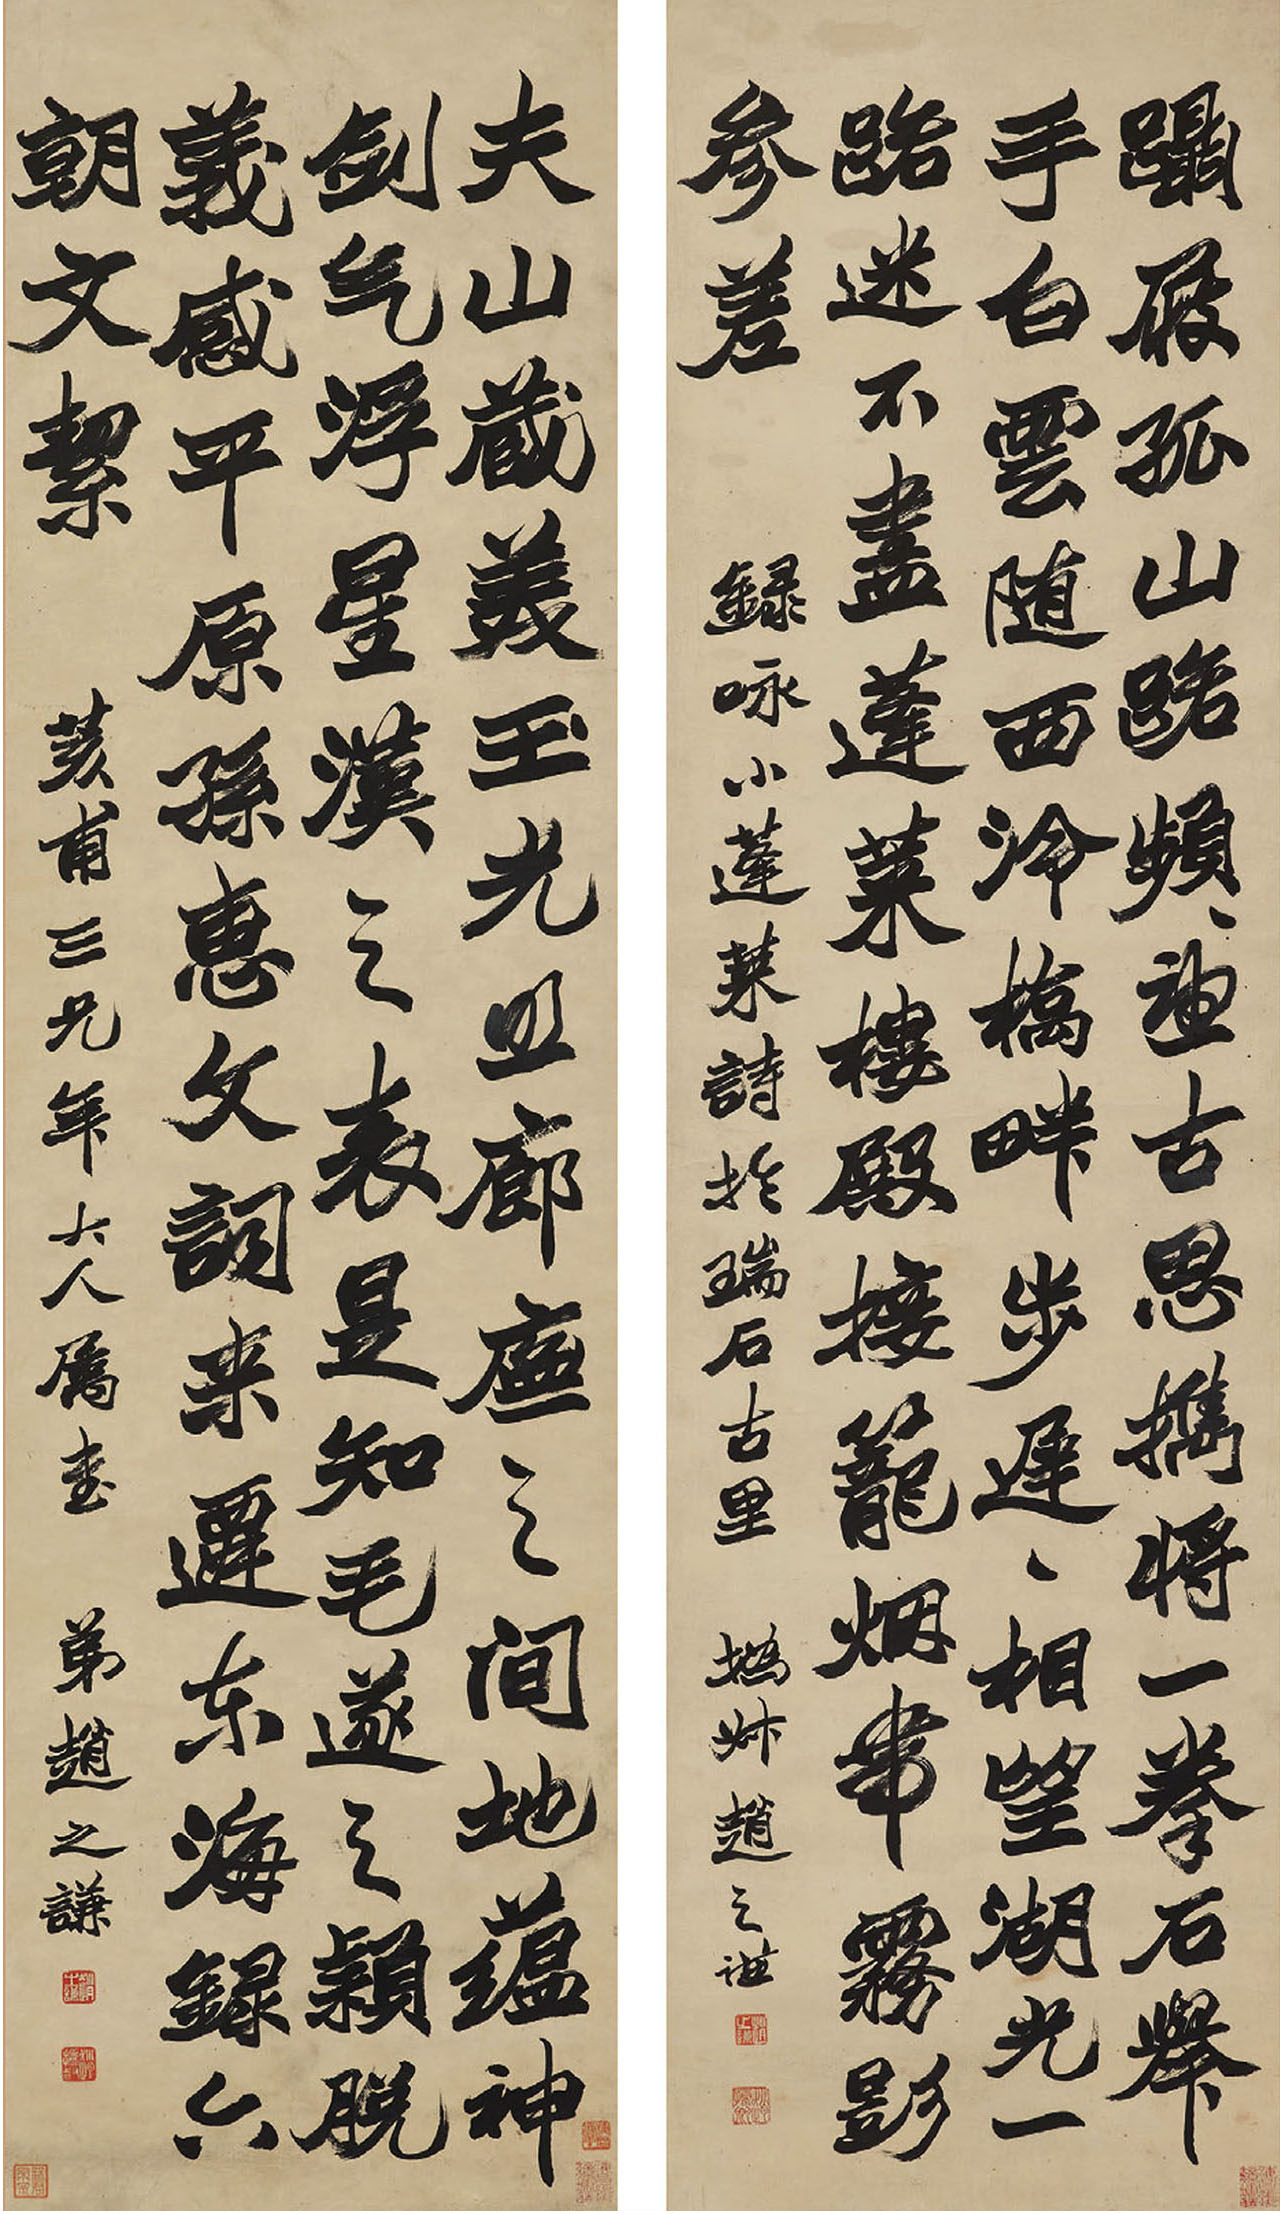 蹑破孤山路頻頻遊古思攜将一拳石舉
手白雲随西泠橋畔步遲遲相望湖光一
路迷不盡蓬萊樓殿接籠烟带霧影
参差
録咏小蓬莱詩於瑞石古里 撝叔趙之谦
夫山蔵美玉光照廊廡之间地蕴神
剑气浮星漢之表是知毛遂之穎脱
義感平原孫惠文詞来遷东海録六
朝文絜
荄甫三兄年大人属书 弟趙之謙